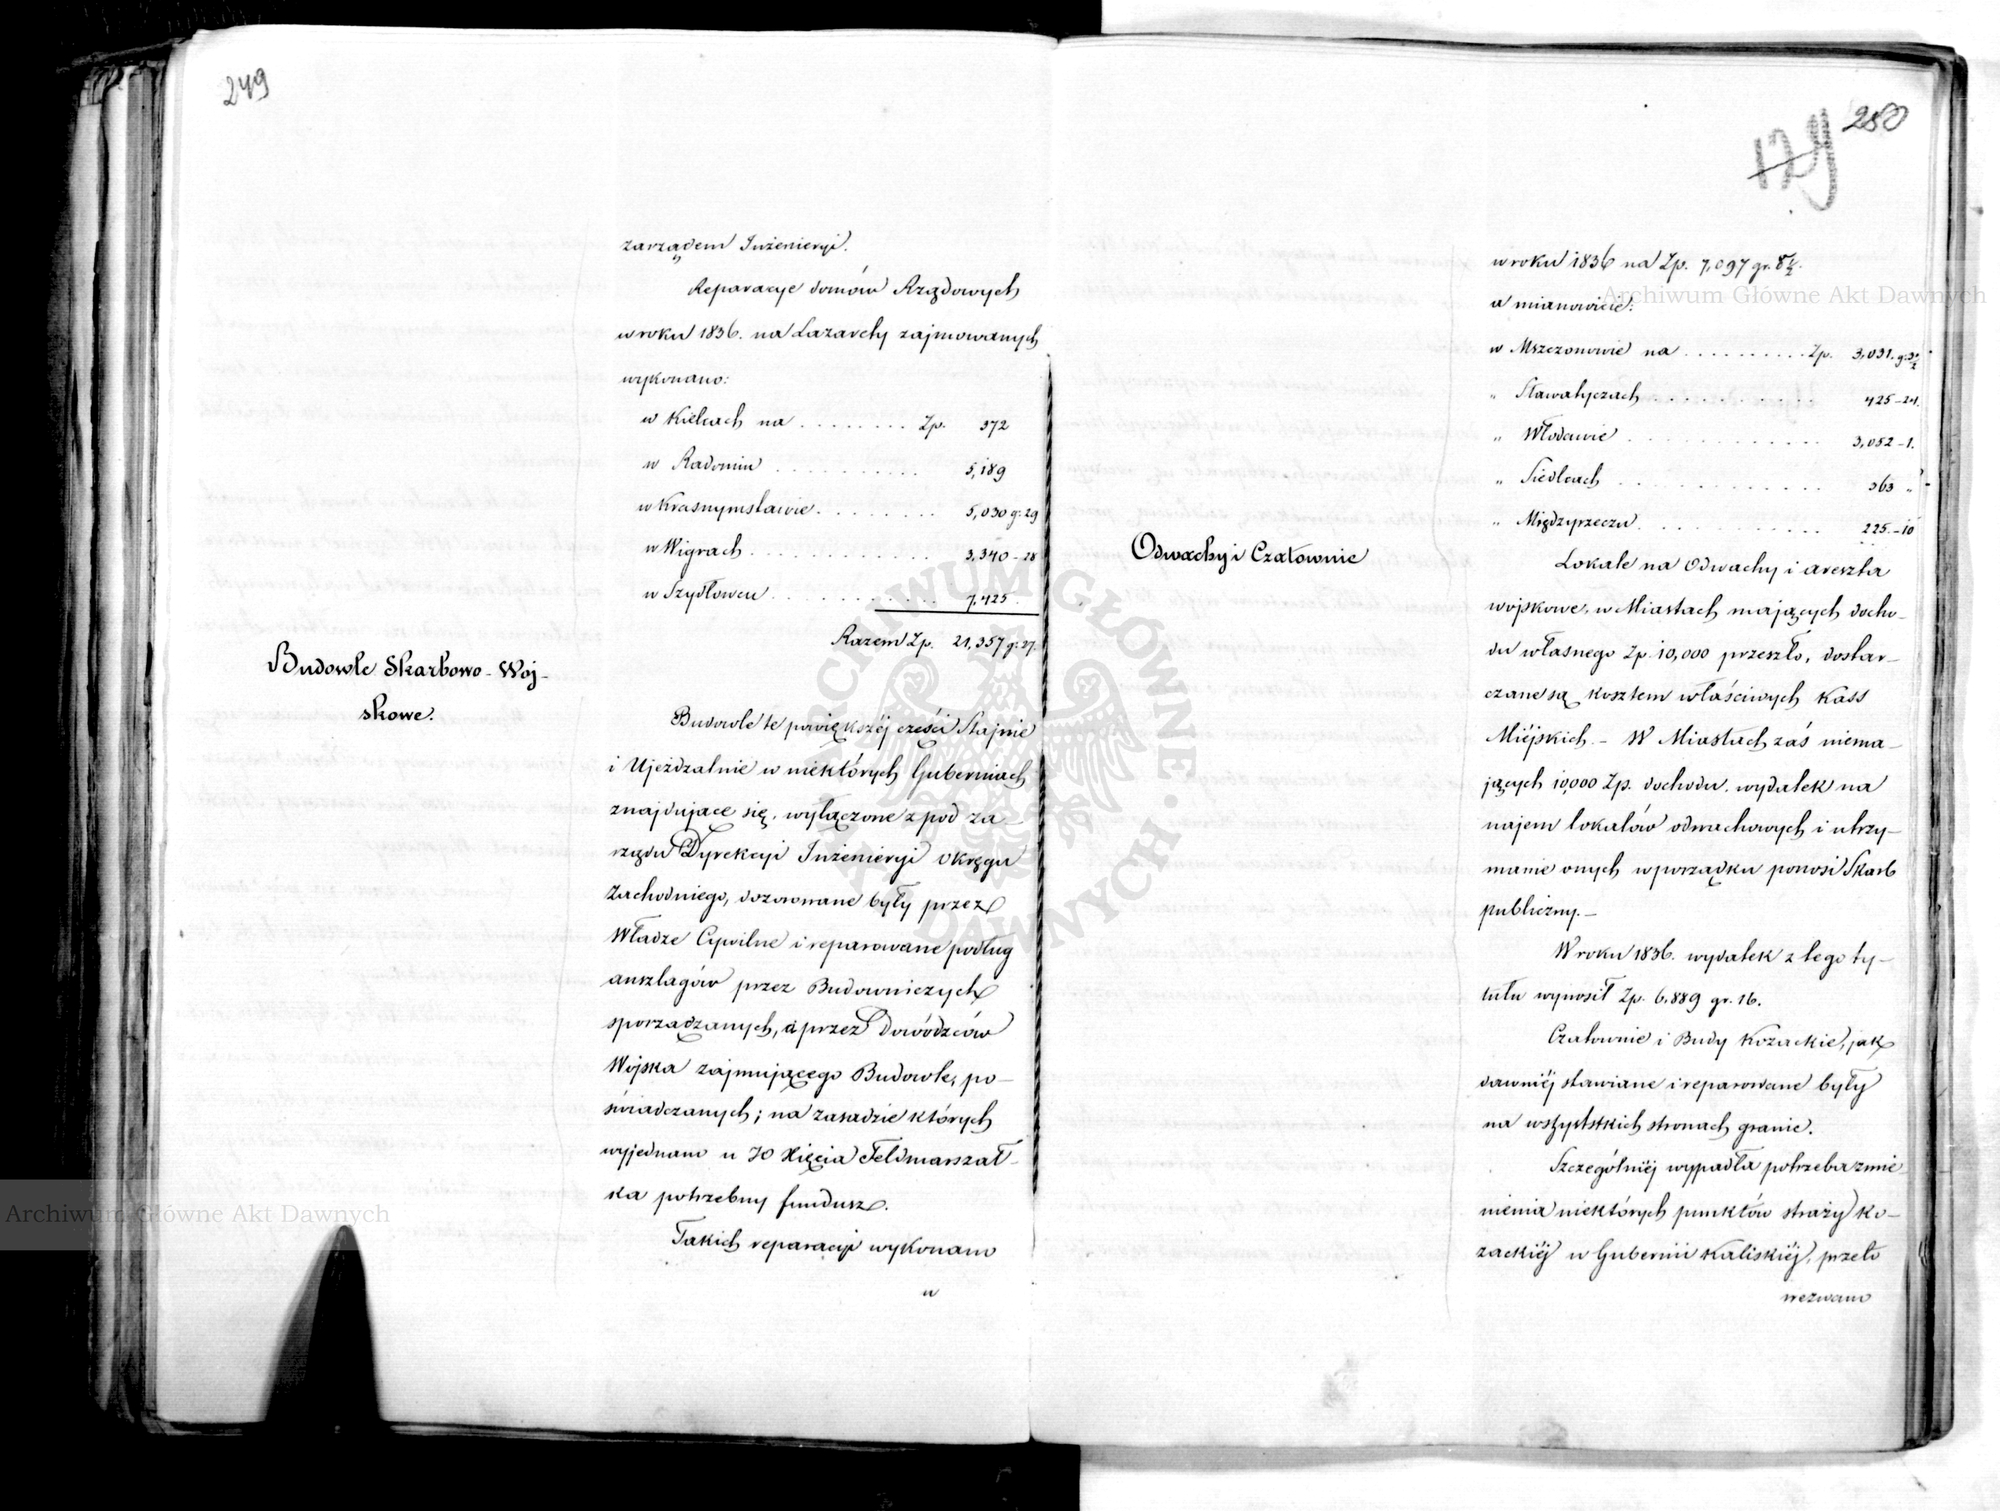 249
zarządem Inżenieryi.
Reparacye domów Rządowych
w roku 1836. na Lazarety zajmowanych
wykonano:
w Kielcach na . . . . . . . . Zp. 372
w Radomiu . . . . . . . . . . 5,189
w Krasnymstawie . . . . . . . . 5,030 g: 29
w Wigrach . . . . . . . . . . . . 3,340 - 28
w Szydłowcu . . . . . . . . . . . 7,425.
Razem Zp. 21,357 g: 27.
Budowle Skarbowo - Woj-
skowe.
Budowle te powiększéj cześci Stajnie
i Ujeżdzalnie w niektórych Guberniach
znajdujące się, wyłączone z pod za-
rządu Dyrekcyi Inżenieryi Okręgu
Zachodniego, dozorowane były przez
Władze Cywilne i reparowane podług
anszlagów przez Budowniczych
sporządzanych, a przez Dowódzców
Wojska zajmującego Budowle, po-
świadczanych; na zasadzie których
wyjednano u JO Xięcia Feldmarszał-
ka potrzebny fundusz.
Takich reparacyi wykonano
w
250
179
w roku 1836 na Zp. 7,097 gr. 8½.
a mianowicie:
w Mszczonowie na . . . . . . . . . . Zp. 3,031. g:
" Sławatyczach . . . . . . . . . . . 425 - 24.
" Włodawie . . . . . . . . . . . . . 3,052 - 1.
" Siedlcach . . . . . . . . . . . . . 363 "
" Międzyrzeczu . . . . . . . . . . . . 225. - 10
Odwachy i Czatownie
Lokale na Odwachy i areszta
wojskowe, w Miastach mających docho-
du własnego Zp. 10,000 przeszło, dostar-
czane są kosztem właściwych Kass
Miéjskich. - W Miastach zaś niema-
jących 10,000 Zp. dochodu, wydatek na
najem lokalów odwachowych i utrzy-
manie onych w porządku ponosi Skarb
publiczny. -
W roku 1836. wydatek z tego ty-
tułu wynosił Zp. 6,889 gr. 16.
Czatownie i Budy Kozackie, jak
dawniéj stawiane i reparowane były
na wszystkich stronach granic.
Szczególniéj wypadła potrzeba zmie
nienia niektórych punktów straży Ko-
zackiéj w Gubernii Kaliskiéj, przeto
wezwano
Archiwum Główne Akt Dawnych
Archiwum Główne Akt Dawnych
ARCHIWUM GŁÓWNE AKT DAWNYCH